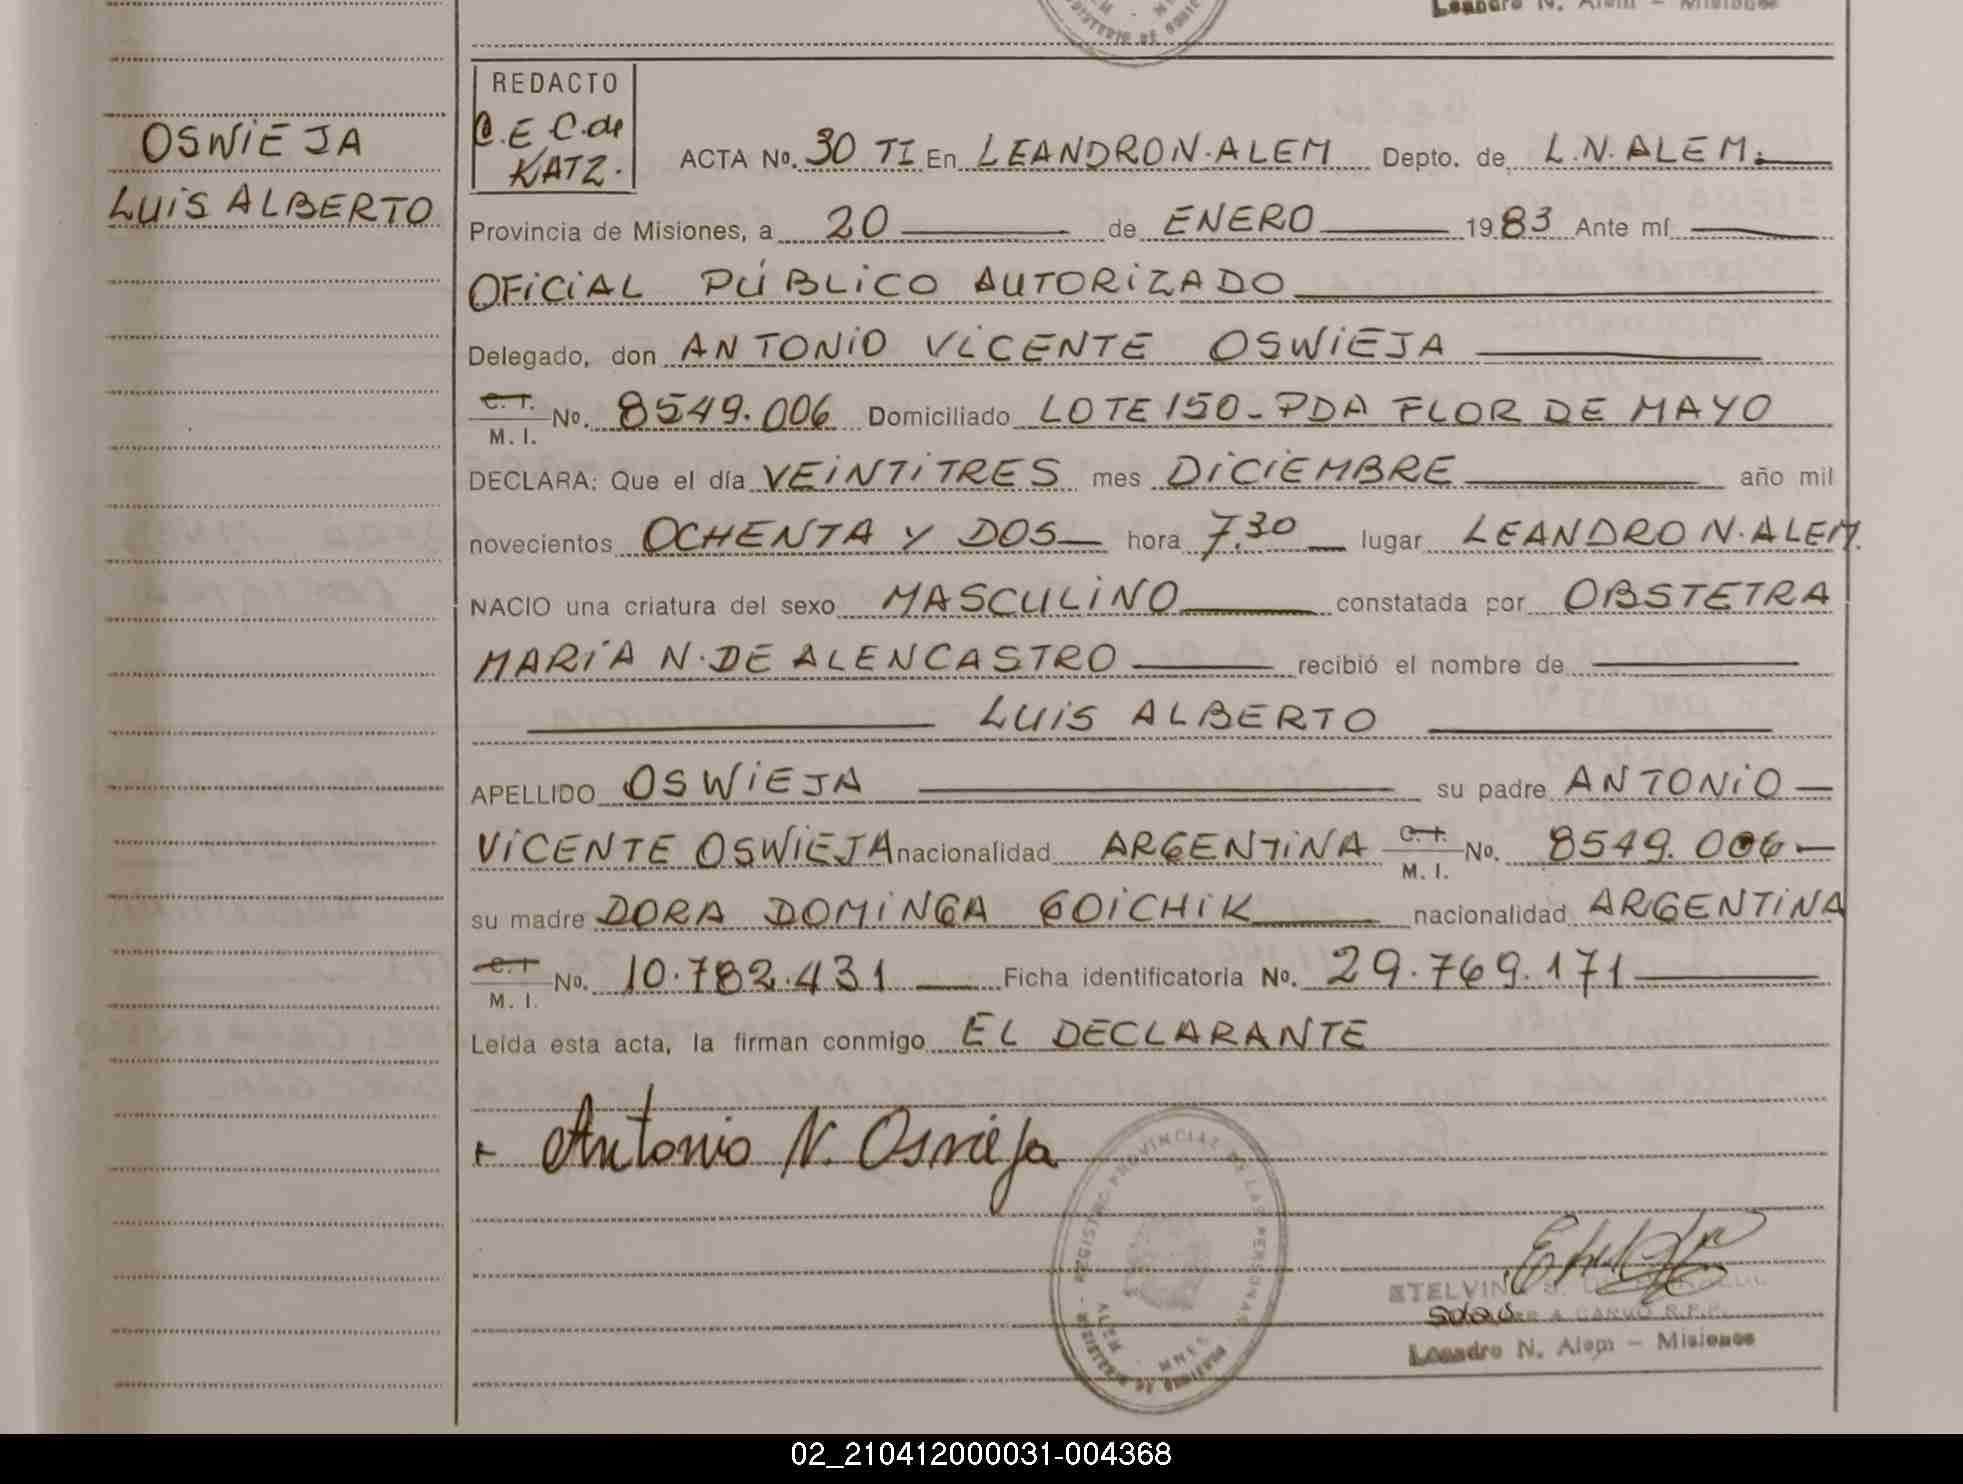 Leandro N. Alem - Misiones
OSWIEJA
LUIS ALBERTO
REDACTO
C.E C.de
KATZ.
ACTA No. 30 TI En LEANDRO N. ALEM Depto. de L.N. ALEM.
Provincia de Misiones, a 20 de ENERO 1983 Ante mí
OFICIAL PÚBLICO AUTORIZADO
Delegado, don ANTONIO VICENTE OSWIEJA
C.I. M. I. No. 8549.006 Domiciliado LOTE 150 - PDA FLOR DE MAYO
DECLARA: Que el día VEINTITRES mes DICIEMBRE año mil
novecientos OCHENTA Y DOS hora 7.30 lugar LEANDRO N. ALEM.
NACIO una criatura del sexo MASCULINO constatada por OBSTETRA
MARÍA N. DE ALENCASTRO recibió el nombre de
LUIS ALBERTO
APELLIDO OSWIEJA su padre ANTONIO
VICENTE OSWIEJA nacionalidad ARGENTINA C.I. M. I. No. 8549.006
su madre DORA DOMINGA GOICHIK nacionalidad ARGENTINA
C.I. M. I. No. 10.782.431 Ficha identificatoria No. 29.769.171
Leída esta acta, la firman conmigo EL DECLARANTE
Antonio V. Oswieja
REGISTRO PROVINCIAL DE LAS PERSONAS
ALEM - MNES
MINISTERIO DE GOBIERNO
A CARGO R.P.P.
Leandro N. Alem - Misiones
02_210412000031-004368